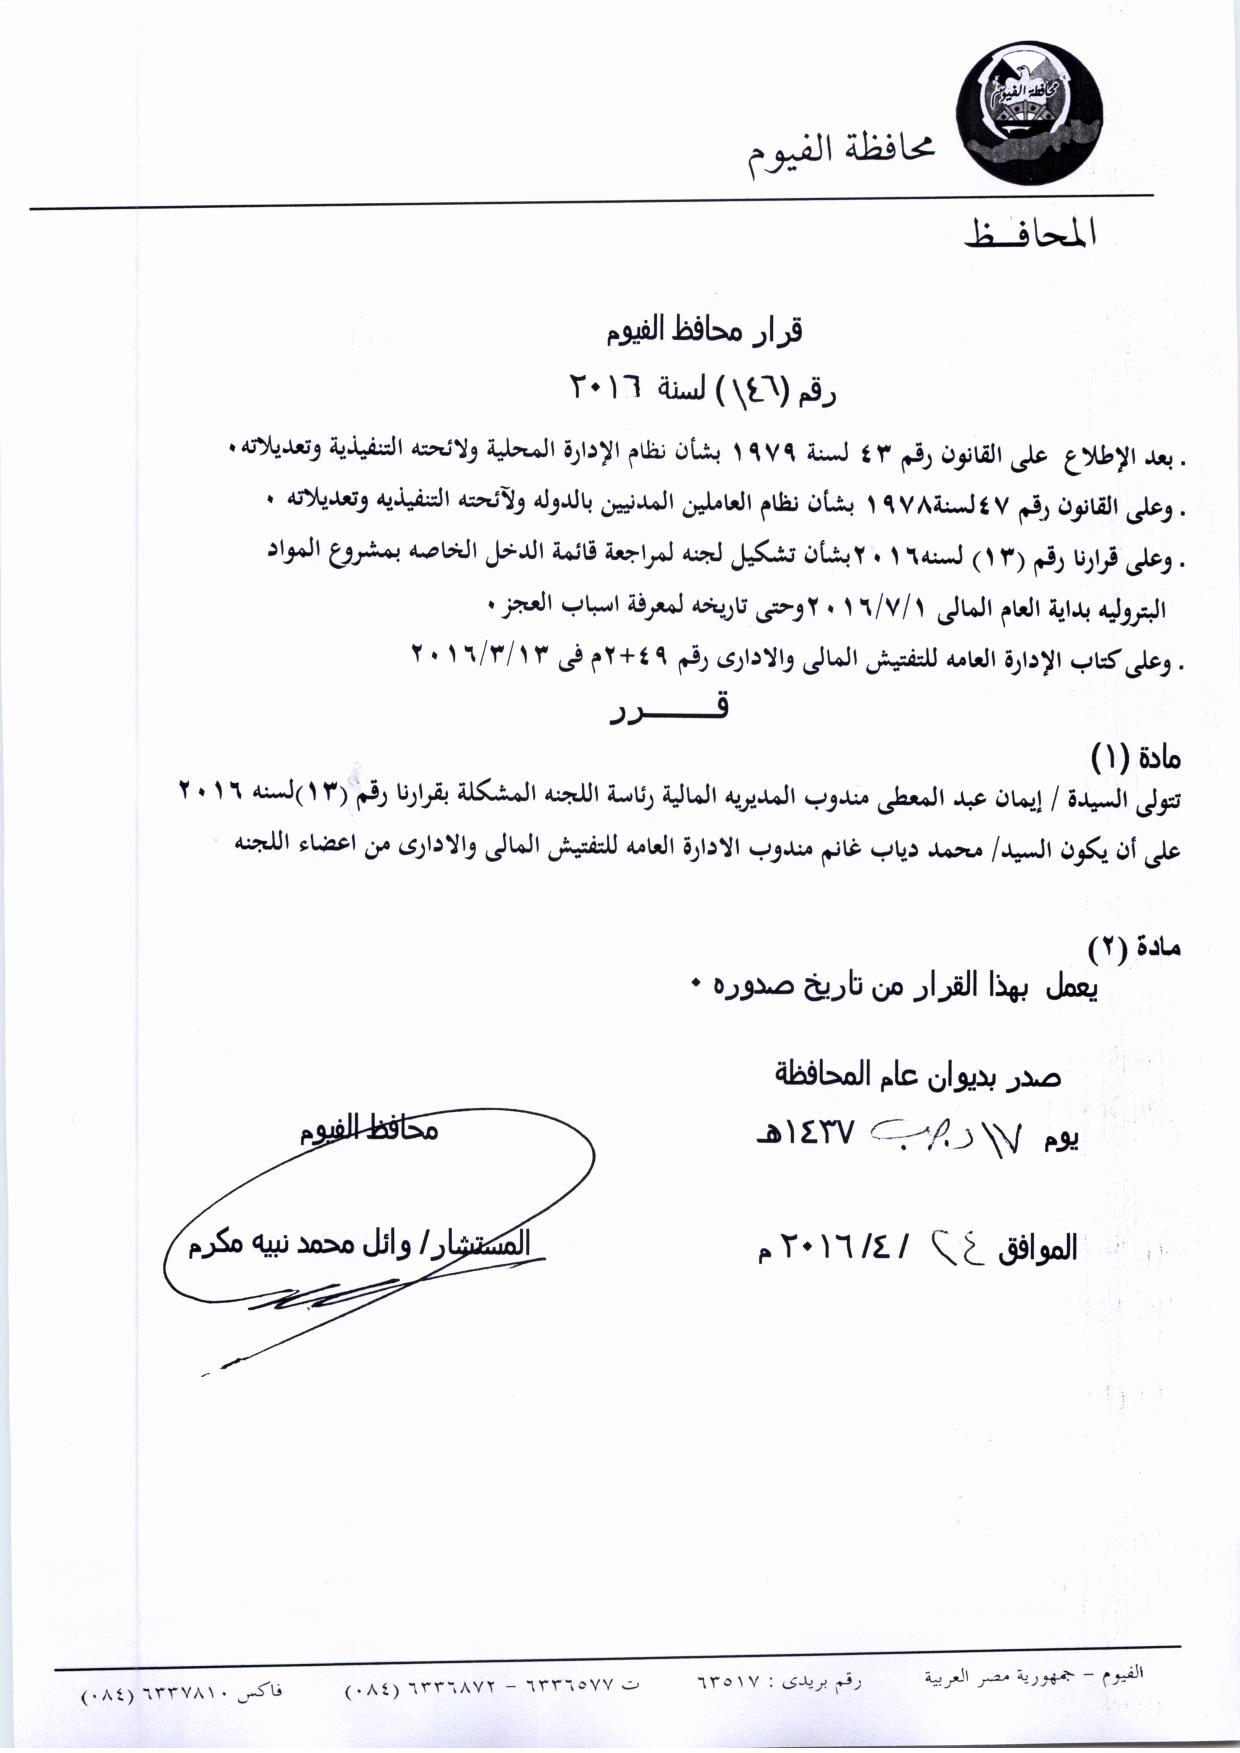 محافظة الفيوم
محافظة الفيوم
المحافــظ
قرار محافظ الفيوم
رقم (١٤٦) لسنة ٢٠١٦
. بعد الإطلاع على القانون رقم ٤٣ لسنة ١٩٧٩ بشأن نظام الإدارة المحلية ولائحته التنفيذية وتعديلاته٠
. وعلى القانون رقم ٤٧لسنة١٩٧٨ بشأن نظام العاملين المدنيين بالدوله ولآئحته التنفيذيه وتعديلاته ٠
. وعلى قرارنا رقم (١٣) لسنه٢٠١٦بشأن تشكيل لجنه لمراجعة قائمة الدخل الخاصه بمشروع المواد
البتروليه بداية العام المالى ٢٠١٦/٧/١وحتى تاريخه لمعرفة اسباب العجز ٠
. وعلى كتاب الإدارة العامه للتفتيش المالى والادارى رقم ٤٩+٢م فى ٢٠١٦/٣/١٣
قــــــرر
مادة (١)
تتولى السيدة / إيمان عبد المعطى مندوب المديريه المالية رئاسة اللجنه المشكلة بقرارنا رقم (١٣)لسنه ٢٠١٦
على أن يكون السيد/ محمد دياب غانم مندوب الادارة العامه للتفتيش المالى والادارى من اعضاء اللجنه
مادة (٢)
يعمل بهذا القرار من تاريخ صدوره ٠
صدر بديوان عام المحافظة
يوم ١٧ رجب ١٤٣٧هـ
الموافق ٢٤ / ٤/ ٢٠١٦ م
محافظ الفيوم
المستشار/ وائل محمد نبيه مكرم
الفيوم – جمهورية مصر العربية رقم بريدى : ٦٣٥١٧ ت ٦٣٣٦٥٧٧ – ٦٣٣٦٨٧٢ (٠٨٤) فاكس ٦٣٣٧٨١٠ (٠٨٤)